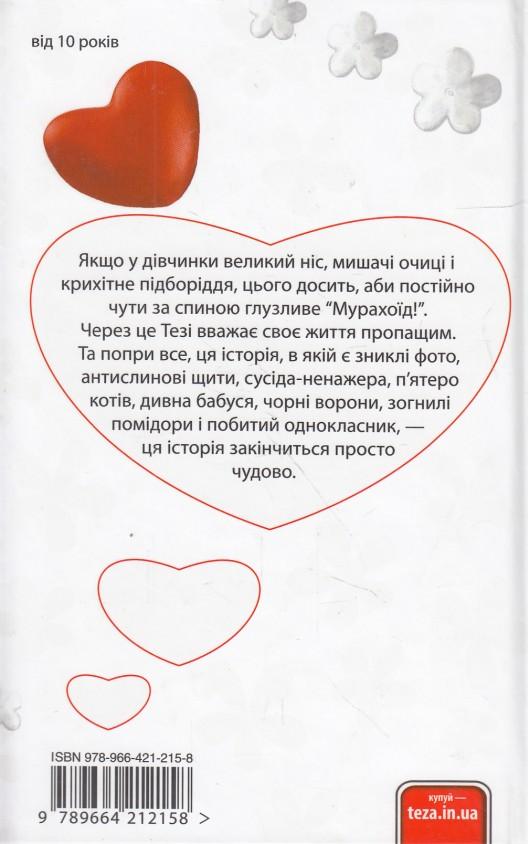 від 10 років
Якщо у дівчинки великий ніс, мишачі очиці і
крихітне підборіддя, цього досить, аби постійно
чути за спиною глузливе “Мурахоїд!”.
Через це Тезі вважає своє життя пропащим.
Та попри все, ця історія, в якій є зниклі фото,
антислинові щити, сусіда-ненажера, п’ятеро
котів, дивна бабуся, чорні ворони, зогнилі
помідори і побитий однокласник, —
ця історія закінчиться просто
чудово.
ISBN 978-966-421-215-8
9 789664 212158 >
купуй —
teza.in.ua